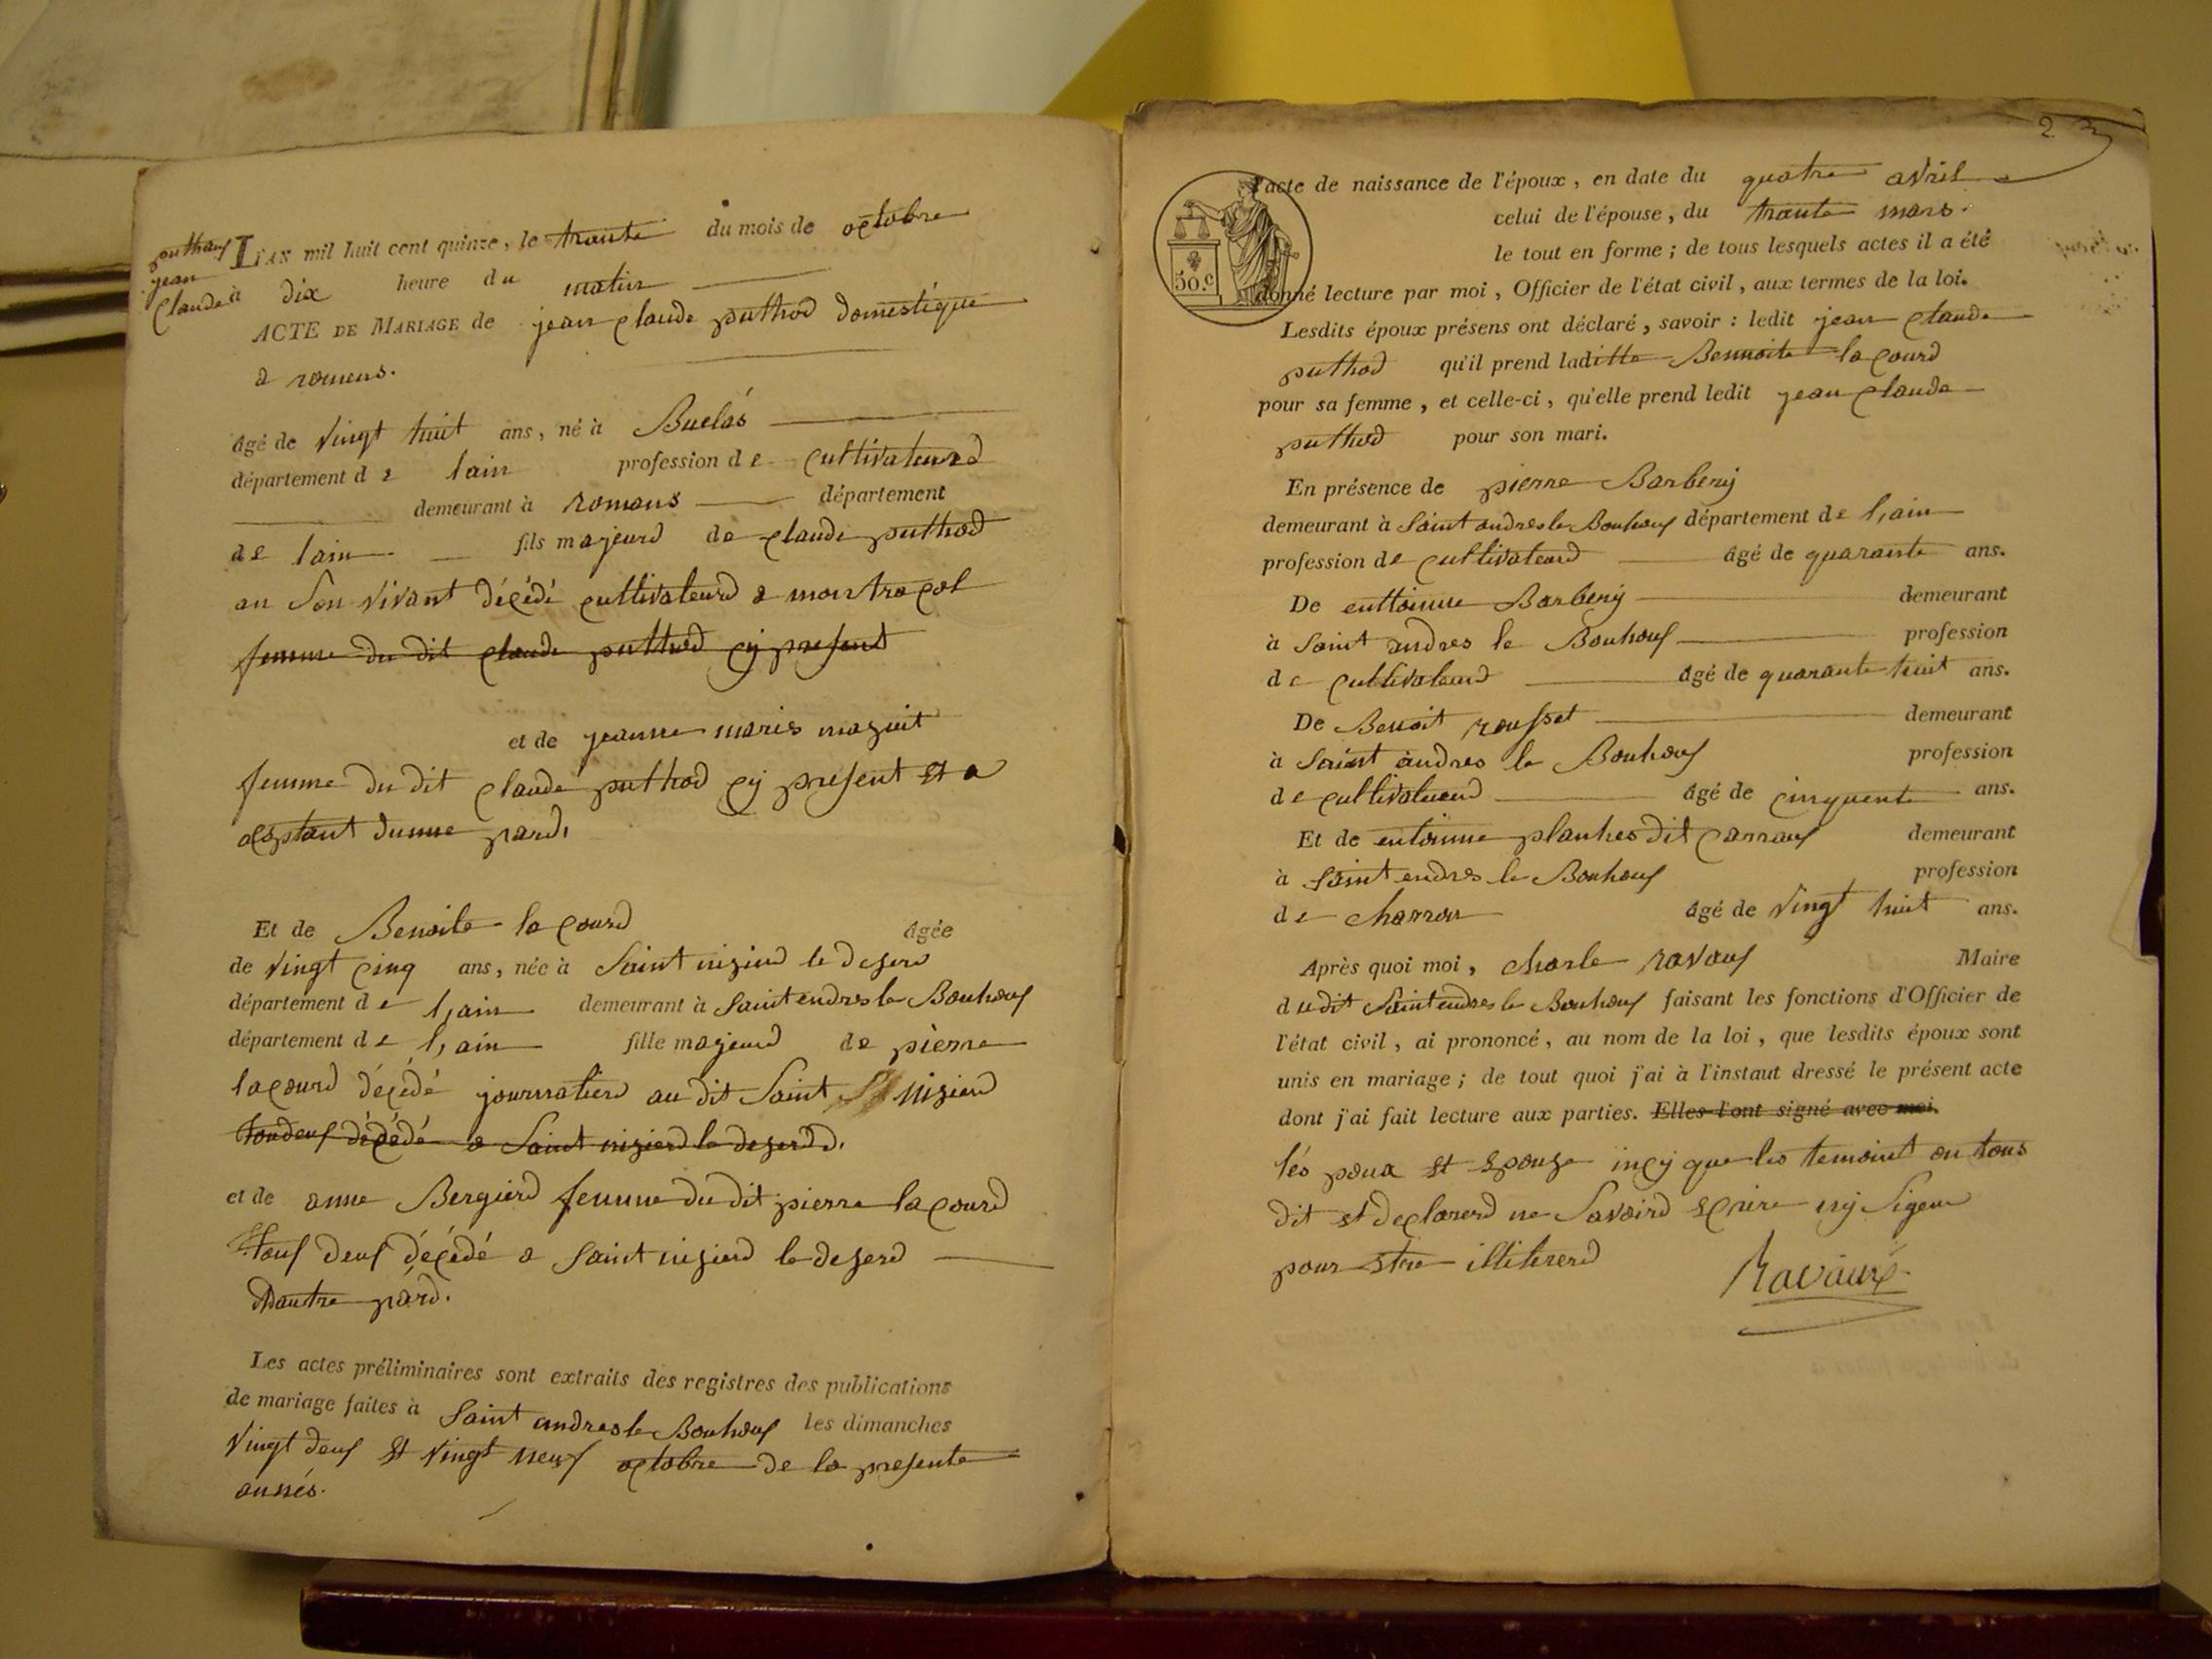 puthauf
jean
Claude
L'AN mil huit cent quinze, le trante du mois de octobre
à dix heure du matin
ACTE DE MARIAGE de jean Claude puthod domestique
a romens.
âgé de vingt huit ans, né à Buelas
département de lain profession de Cultivateurd
demeurant à romans département
de lain fils majeurd de Claude puthod
an Son vivant décédé cultivateurd a montracol
femme du dit Claude puthod cy present
et de jeanne maris mazuit
femme du dit Claude puthod cy present et a
aceptant dunne pard,
Et de Benoite la Courd âgée
de vingt cinq ans, née à Saint nizierd le dezerd
département de l,ain demeurant à Saint endres le Bouhouf
département de l,ain fille majeurd de pierre
lacourd décédé journatierd au dit Saint nizierd
tondeuf décédé a Saint nizierd le dezerd.
et de anne Bergierd femme du dit pierre la Courd
touf deuf décédé a Saint nizierd le dezerd
Dautre pard.
Les actes préliminaires sont extraits des registres des publications
de mariage faites à Saint andres le Bouhouf les dimanches
vingt deuf et vingt neuf octobre de la presente
annés.
2
l'acte de naissance de l'époux, en date du quatre avril
celui de l'épouse, du trante mars.
le tout en forme; de tous lesquels actes il a été
50.c
donné lecture par moi, Officier de l'état civil, aux termes de la loi.
Lesdits époux présens ont déclaré, savoir : ledit jean Claude
puthod qu'il prend laditte Bennoite la Courd
pour sa femme, et celle-ci, qu'elle prend ledit jean Claude
puthod pour son mari.
En présence de pierre Barbery
demeurant à Saint andres le Bouhouf département de l,ain
profession de Cultivateurd âgé de quarante ans.
De enttoinne Barbery demeurant
à Saint andres le Bouhouf profession
de Cultivateurd âgé de quarante huit ans.
De Benoit rousset demeurant
à Saint andres le Bouhouf profession
de cultivateurd âgé de cinquente ans.
Et de entoinne planhes dit Carrauf demeurant
à Saint endres le Bouhouf profession
de charron âgé de vingt huit ans.
Après quoi moi, charle ravauf Maire
dudit Saint endres le Bouhouf faisant les fonctions d'Officier de
l'état civil, ai prononcé, au nom de la loi, que lesdits époux sont
unis en mariage; de tout quoi j'ai à l'instaut dressé le présent acte
dont j'ai fait lecture aux parties. Elles l'ont signé avec moi.
lés poux et epouze incy que les temoint on tous
dit et declarerd ne Savoird ecrire ny Signe
pour etre illitererd Ravaux